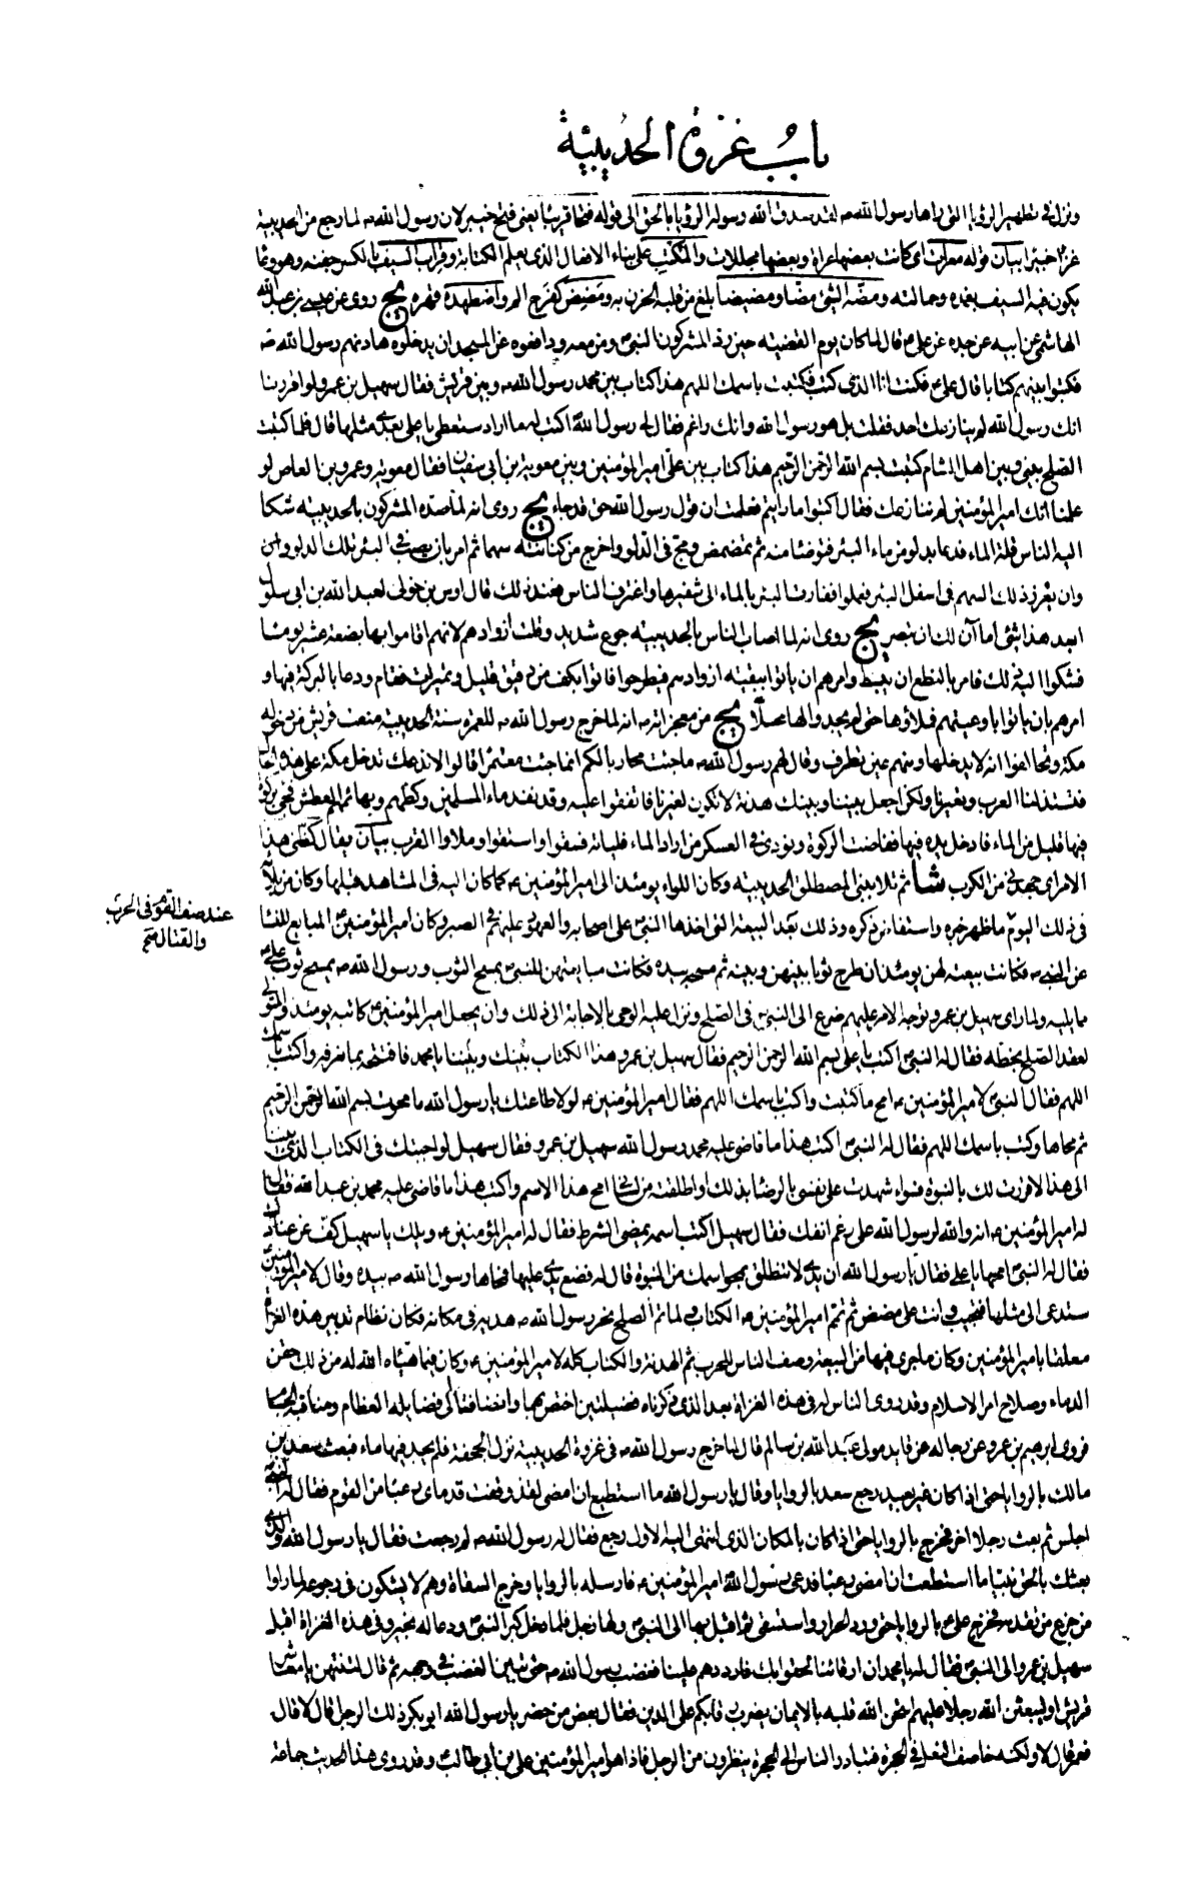 باب غزوة الحديبية
ونزل في تطهير الرؤيا التي راها رسول الله ص لقد صدق الله رسوله الرؤيا بالحق الى قوله فتحا قريبا يعني فتح خيبر لان رسول الله ص لما رجع من الحديبية
غزا خيبر بيان قوله معرات اي كانت بعضها عراة وبعضها مجللات والمكتب على بناء الافعال الذي يعلم الكتابة وقراب السيف بالكسر جفنه وهو وعاء
يكون فيه السيف بغمده وحمالته ومضه الشيء مضا ومضيضا بلغ من قلبه الحزن به ومضيض كفرح الم واضطهده قهره يج روى عن عيسى بن عبد الله
الهاشمي عن ابيه عن جده عن علي ع قال لما كان يوم القضية حين رد المشركون النبي ص ومن معه ودافعوه عن المسجد ان يدخلوه هادنهم رسول الله ص
فكتبوا بينهم كتابا قال علي ع فكنت انا الذي كتب فكتبت باسمك اللهم هذا كتاب بين محمد رسول الله ص وبين قريش فقال سهيل بن عمرو لو اقررنا
انك رسول الله لم ينازعك احد فقلت بل هو رسول الله وانك راغم فقال لي رسول الله اكتب له ما اراد ستعطى يا علي بعدي مثلها قال فلما كتبت
الصلح بيني وبين اهل الشام كتبت بسم الله الرحمن الرحيم هذا كتاب بين علي امير المؤمنين وبين معوية بن ابي سفيان فقال معوية وعمرو بن العاص لو
علمنا انك امير المؤمنين لم ننازعك فقال اكتبوا ما رايتم فعلمت ان قول رسول الله حق قد جاء يج روى انه لما صده المشركون بالحديبية شكا
اليه الناس قلة الماء فدعا بدلو من ماء البئر فتوضا منه ثم تمضمض ومج في الدلو واخرج من كنانته سهما ثم امر بان يصب في البئر تلك الدلو
وان يغرز ذلك السهم في اسفل البئر فعملوا ففارت البئر بالماء الى شفيرها واغترف الناس فعند ذلك قال اوس بن خولي لعبد الله بن ابي سلول
ابعد هذا شيء اما آن لك ان تبصر يج روى انه لما اصاب الناس بالحديبية جوع شديد وقلت ازوادهم لانهم اقاموا بها بضعة عشر يوما
فشكوا اليه ذلك فامر بالنطع ان يبسط وامرهم ان ياتوا ببقية ازوادهم فيطرحوا فاتوا بكف من دقيق قليل وتميرات فقام ودعا بالبركة فيها و
امرهم بان ياتوا باوعيتهم فملاؤها حتى لم يجدوا لها محلا يج من معجزاته ص انه لما خرج رسول الله ص للعمرة سنة الحديبية منعت قريش من دخوله
مكة وتحالفوا انه لا يدخلها ومنهم عين تطرف وقال لهم رسول الله ص ما جئت محاربا لكم انما جئت معتمرا قالوا لا ندعك تدخل مكة على هذه الحال
فتستذلنا العرب وتعيرنا ولكن اجعل بيننا وبينك هدنة لا تكون لغيرنا فاتفقوا عليه وقد نفد ماء المسلمين وكظهم وبهائمهم العطش فجيء بركوة
فيها قليل من الماء فادخل يده فيها ففاضت الركوة ونودي في العسكر من اراد الماء فلياته فسقوا واستقوا وملاوا القرب بيان يقال كظني هذا
الامر اي جهدني من الكرب شا ثم تلا بني المصطلق الحديبية وكان اللواء يومئذ الى امير المؤمنين ع كما كان اليه في المشاهد قبلها وكان من بلائه
في ذلك اليوم ما ظهر خبره واستفاض ذكره وذلك بعد البيعة التي اخذها النبي ص على اصحابه والعهود عليهم في الصبر وكان امير المؤمنين ع المبايع للنساء
عند صف القوم في الحرب
والقتال صح
عن النبي ص فكانت بيعته لهن يومئذ ان طرح ثوبا بينهن وبينه ثم مسحه بيده فكانت مبايعتهن للنبي ص بمسح الثوب ورسول الله ص يمسح ثوب علي ع
مما يليه ولما راى سهيل بن عمرو توجه الامر عليهم ضرع الى النبي ص في الصلح ونزل عليه الوحي بالاجابة الى ذلك وان يجعل امير المؤمنين ع كاتبه يومئذ والمتولي
لعقد الصلح بخطه فقال له النبي ص اكتب يا علي بسم الله الرحمن الرحيم فقال سهيل بن عمرو هذا الكتاب بينك وبيننا يا محمد فافتتحه بما نعرفه واكتب باسمك
اللهم فقال النبي ص لامير المؤمنين ع امح ما كتبت واكتب باسمك اللهم فقال امير المؤمنين ع لولا طاعتك يا رسول الله ما محوت بسم الله الرحمن الرحيم
ثم محاها وكتب باسمك اللهم فقال له النبي ص اكتب هذا ما قاضى عليه محمد رسول الله سهيل بن عمرو فقال سهيل لو اجبتك في الكتاب الذي بيننا
الى هذا لاقررت لك بالنبوة فسواء شهدت على نفسي بالرضا بذلك او اطلقته من لساني امح هذا الاسم واكتب هذا ما قاضى عليه محمد بن عبد الله فقال
له امير المؤمنين ع انه والله لرسول الله على رغم انفك فقال سهيل اكتب اسمه يمضي الشرط فقال له امير المؤمنين ع ويلك يا سهيل كف عن عنادك
فقال له النبي ص امحها يا علي فقال يا رسول الله ان يدي لا تنطلق بمحو اسمك من النبوة قال له فضع يدي عليها فمحاها رسول الله ص بيده وقال لامير المؤمنين
ستدعى الى مثلها فتجيب وانت على مضض ثم تمم امير المؤمنين ع الكتاب ولما تم الصلح نحر رسول الله ص هديه في مكانه فكان نظام تدبير هذه الغزاة
معلقا بامير المؤمنين وكان ما جرى فيها من البيعة وصف الناس للحرب ثم الهدنة والكتاب كله لامير المؤمنين ع وكان فيما هياه الله له من ذلك حقن
الدماء وصلاح امر الاسلام وقد روى الناس له في هذه الغزاة بعد الذي ذكرناه فضيلتين اختص بهما وانضافتا الى فضايله العظام ومناقبه الجسام
فروى ابرهيم بن عمر عن رجاله عن فايد مولى عبد الله بن سالم قال لما خرج رسول الله ص في غزوة الحديبية نزل الجحفة فلم يجد فيها ماء فبعث سعد بن
مالك بالروايا حتى اذا كان غير بعيد رجع سعد بالروايا وقال يا رسول الله ما استطيع ان امضي لقد وقفت قدماي رعبا من القوم فقال له
اجلس ثم بعث رجلا اخر فخرج بالروايا حتى اذا كان بالمكان الذي انتهى اليه الاول رجع فقال له رسول الله ص لم رجعت فقال يا رسول الله والذي
بعثك بالحق نبيا ما استطعت ان امضي رعبا فدعى رسول الله امير المؤمنين ع فارسله بالروايا وخرج السقاة وهم لا يشكون في رجوعه لما راوا
من جزع من تقدمه فخرج علي ع بالروايا حتى ورد الحرار واستسقى ثم اقبل بها الى النبي ص ولها زجل فلما دخل كبر النبي ص ودعا له بخير وفي هذه الغزاة اقبل
سهيل بن عمرو الى النبي ص فقال له يا محمد ان ارقائنا لحقوا بك فارددهم علينا فغضب رسول الله ص حتى تبين الغضب في وجهه ثم قال لتنتهن يا معاشر
قريش او ليبعثن الله رجلا عليكم امتحن الله قلبه بالايمان يضرب رقابكم على الدين فقال بعض من حضر يا رسول الله ابو بكر ذلك الرجل قال لا قال
فعمر قال لا ولكنه خاصف النعل في الحجرة فتبادر الناس الى الحجرة ينظرون من الرجل فاذا هو امير المؤمنين علي بن ابي طالب ع وقد روى هذا الحديث جماعة